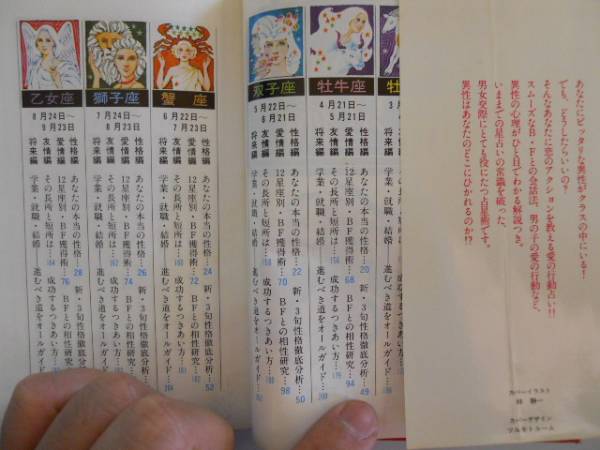 あなたにピッタリな異性がクラスの中にいる!
でも、どうしたらいいの?
そんなあなたに恋のアクションを教える愛の行動占い!!
スムーズなB・Fとの会話法、男の子の愛の行動など、
異性の心理がひと目でわかる解説つき。
いままでの星占いの常識を破った、
男女交際にとても役にたつ占星術です。
異性はあなたのどこにひかれるのか!?
カバーイラスト
カバーデザイン
ツルモトルーム
牡牛座
4月21日〜
5月21日
性格編 あなたの本当の性格…20 新・3旬性格徹底分析…49
愛情編 12星座別・BF獲得術…68 BFとの相性研究…94
友情編 その長所と短所は… 成功するつきあい方…
将来編 学業・就職・結婚──進むべき道をオールガイド…
双子座
5月22日〜
6月21日
性格編 あなたの本当の性格…22 新・3旬性格徹底分析…50
愛情編 12星座別・BF獲得術…70 BFとの相性研究…98
友情編 その長所と短所は… 成功するつきあい方…
将来編 学業・就職・結婚──進むべき道をオールガイド…
蟹座
6月22日〜
7月23日
性格編 あなたの本当の性格…24 新・3旬性格徹底分析…
愛情編 12星座別・BF獲得術…72 BFとの相性研究…
友情編 その長所と短所は… 成功するつきあい方…
将来編 学業・就職・結婚──進むべき道をオールガイド…
獅子座
7月24日〜
8月23日
性格編 あなたの本当の性格…26 新・3旬性格徹底分析…
愛情編 12星座別・BF獲得術…74 BFとの相性研究…
友情編 その長所と短所は… 成功するつきあい方…
将来編 学業・就職・結婚──進むべき道をオールガイド…
乙女座
8月24日〜
9月23日
性格編 あなたの本当の性格…28 新・3旬性格徹底分析…52
愛情編 12星座別・BF獲得術…76 BFとの相性研究…
友情編 その長所と短所は…164 成功するつきあい方…
将来編 学業・就職・結婚──進むべき道をオールガイド…